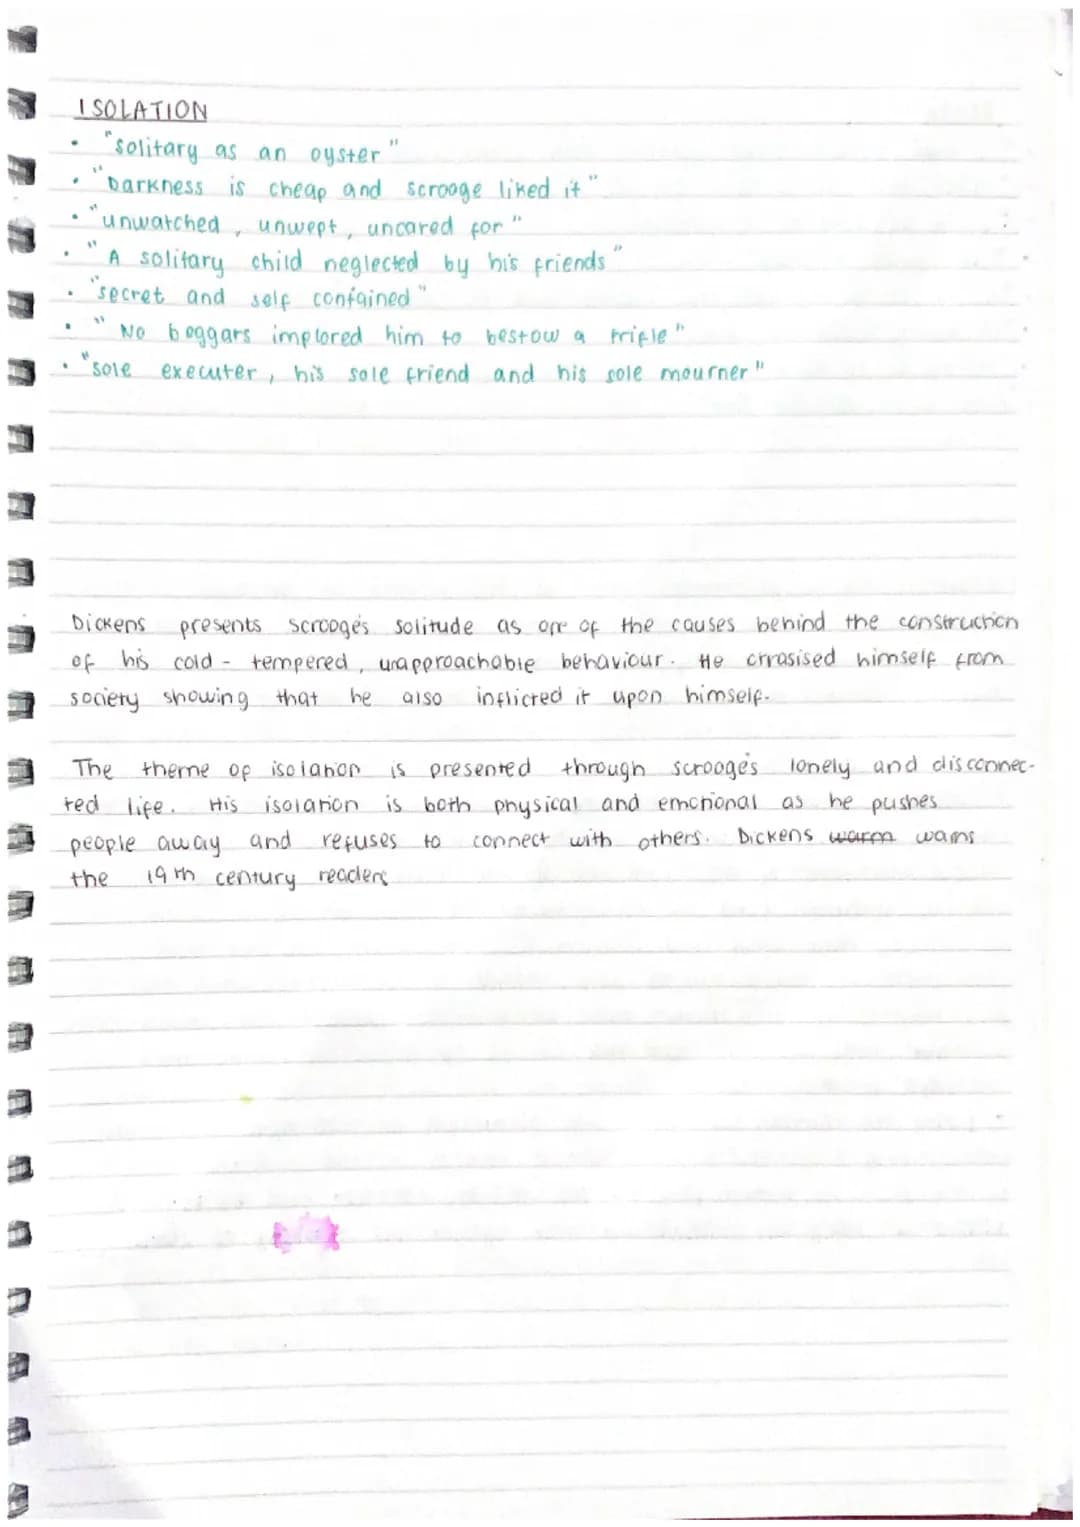 ISOLATION
• "solitary as an oyster"
• "Darkness is cheap and scrooge liked it"
• "unwatched, unwept, uncared for"
• "A solitary child neglected by his friends"
• "secret and self confained"
• "No beggars implored him to bestow a trifle"
• "sole executer, his sole friend and his sole mourner"
Dickens presents scrooge's solitude as one of the causes behind the construction
of his cold - tempered, unapproachable behaviour. He orrasised himself from
society showing that he also inflicted it upon himself.
The theme of isolation is presented through scrooge's lonely and disconnec-
ted life. His isolation is both physical and emotional as he pushes
people away and refuses to connect with others. Dickens warm warns
the 19th century readers